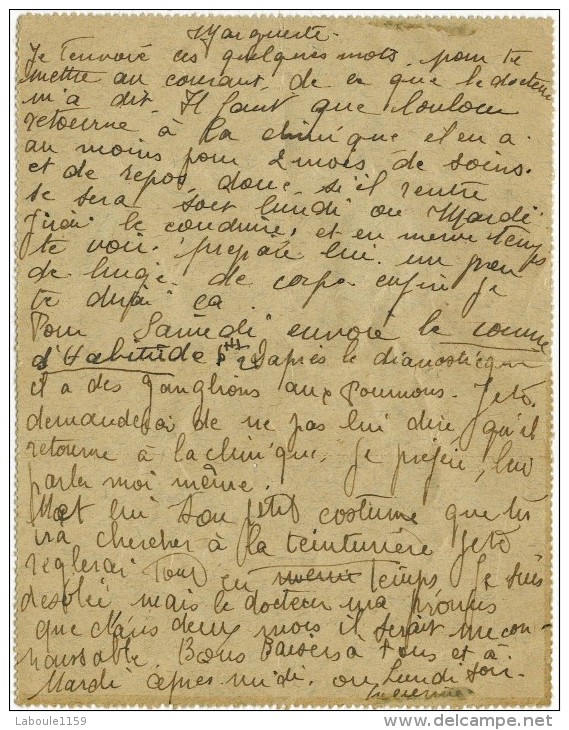 Marguerite.
Je t'envoie ces quelques mots, pour te
mettre au courant, de ce que le docteur
m'a dit. Il faut que Loulou
retourne à la clinique il en a.
au moins pour 2 mois de soins.
et de repos, donc, s'il rentre
se sera soit lundi ou Mardi
J'irai le conduire, et en meme temps
te voir. prepare lui un peu
de linge de corps enfin je
te dirai ça.
Pour Samedi envoie le comme
d'Habitude d'apres le
il a des Ganglions aux Poumons. Je te
demanderai de ne pas lui dire, qu'il
retourne à la clinique, Je préfère, lui
parler moi même.
Met lui son petit costume que tu
ira chercher à la teinturière je te
reglerai Tout en meme temps Je suis
desolée, mais le docteur m'a promis
que dans deux mois il serait mecon-
naissable. Bons Baisers a tous et à.
Mardi après midi. ou Lundi soir.
Lucienne
Laboule1159
www.delcampe.net